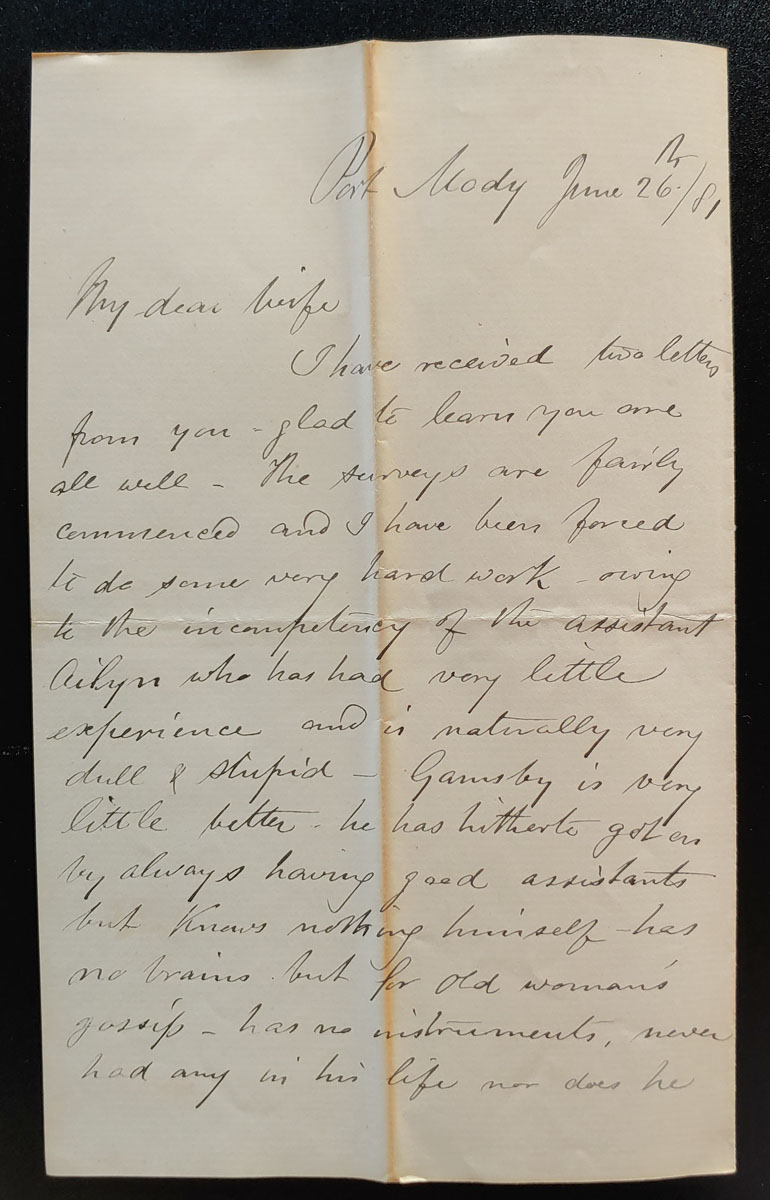 Port Mody June 26th/81
My dear Wife
I have received two letters
from you - glad to learn you are
all well - The surveys are fairly
commenced and I have been forced
to do some very hard work - owing
to the incompetency of the assistant
who has had very little
experience and is naturally very
dull & stupid - Gamsby is very
little better - he has hitherto got on
by always having good assistants
but Knows nothing himself - has
no brains but for old woman's
gossip - has no instruments, never
had any in his life nor does he